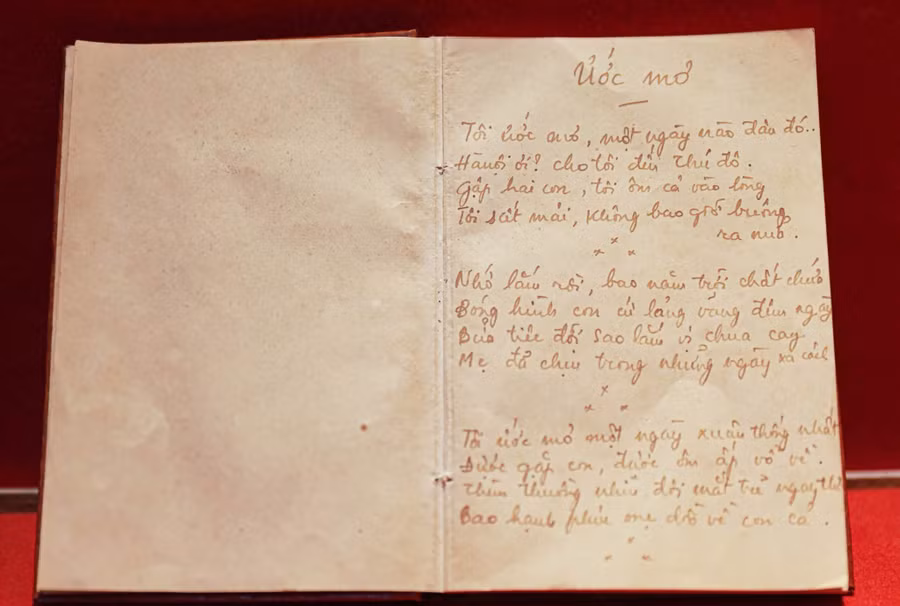 Ước mơ
Tôi ước mơ, một ngày nào đâu đó..
Hà nội ơi? cho tôi đến thủ đô.
Gặp hai con, tôi ôm cả vào lòng
Tôi siết mãi, không bao giờ buông
ra nữa.
Nhớ lắm rồi, bao năm trời chất chứa
Bóng hình con cứ lảng vảng đêm ngày
Bữa tiệc đời sao lắm vị chua cay
Mẹ đã chịu trong những ngày xa cách
Tôi ước mơ một ngày xuân thống nhất
Được gặp con, được ôm ấp vỗ về.
thương nhìn đôi mắt trẻ ngây thơ
Bao hạnh phúc mẹ dồn về con cả.